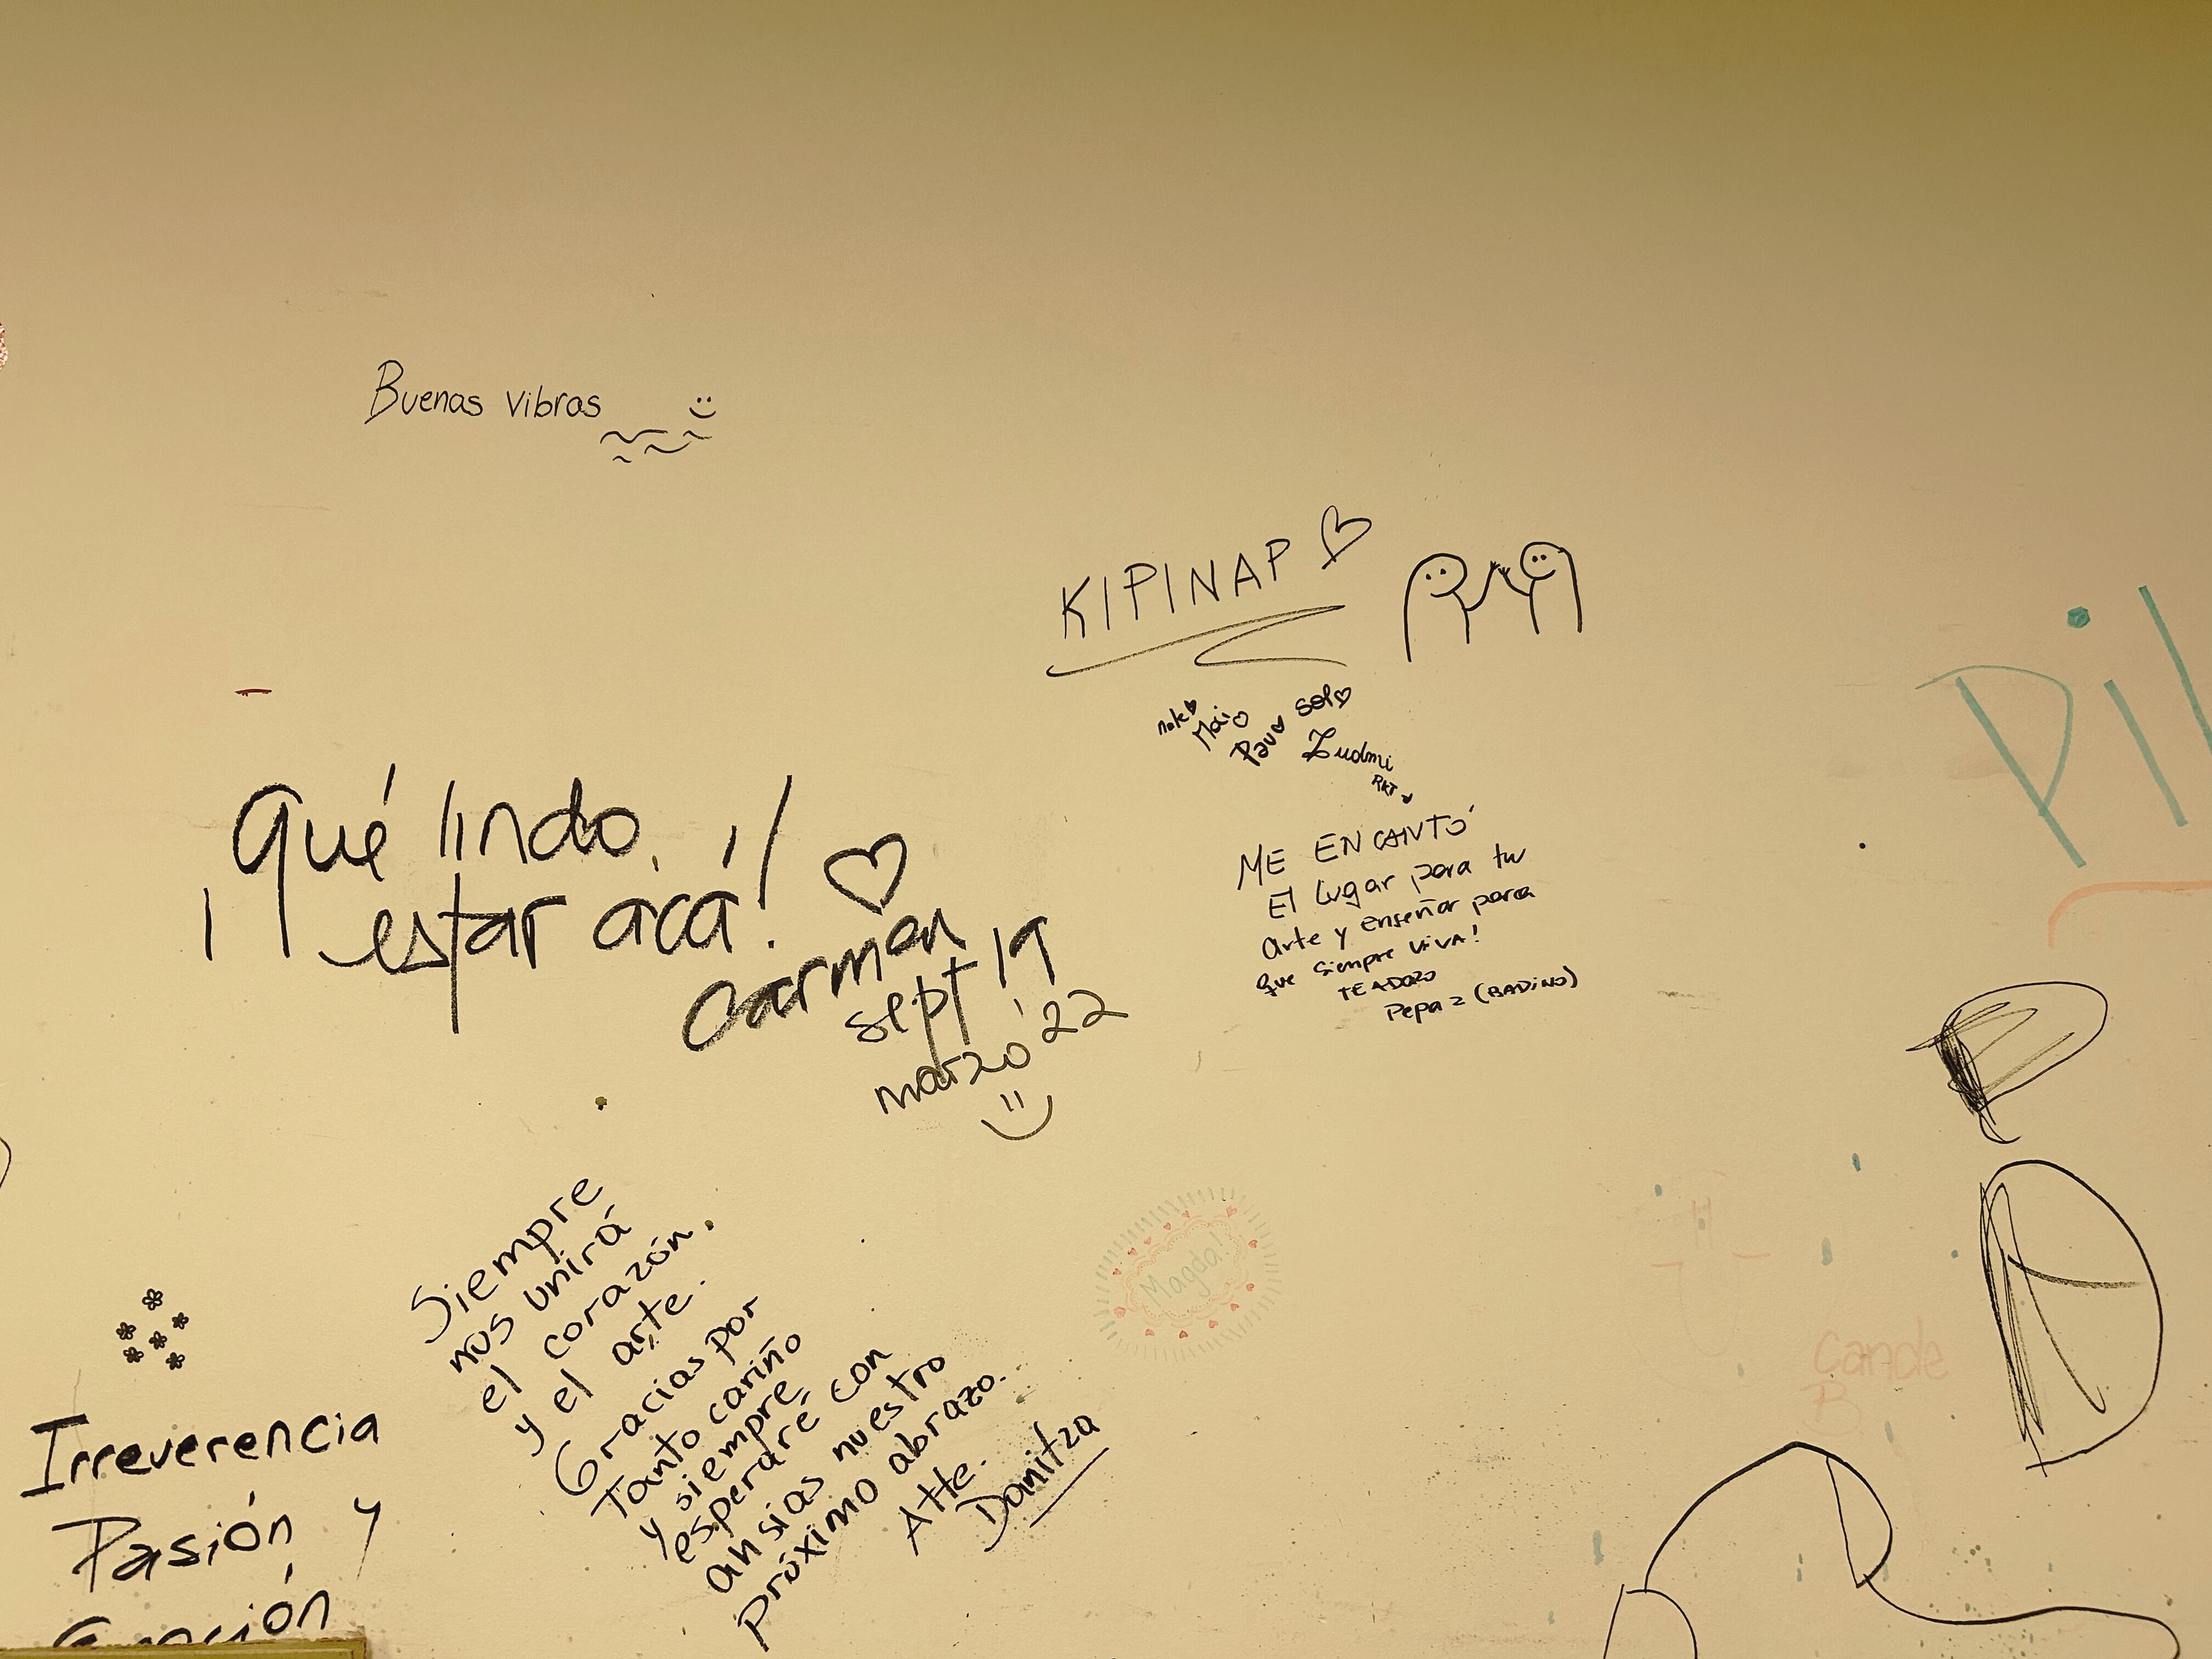 Buenas vibras
KIPINAP
Mai
Pau
Sol
Ludmi
RKT
¡Qué lindo,
estar acá!
Carmen
sept 19
marzo '22
ME ENCANTÓ
El lugar para tu
arte y enseñar para
que siempre viva!
TE ADORO
Pepa 2 (BADINO)
Pil
Magda!
Cande
B
Siempre
nos unirá
el corazón.
y el arte.
Gracias por
Tanto cariño
y siempre
esperaré con
ansias nuestro
próximo abrazo.
Atte.
Danitza
Irreverencia
Pasión y